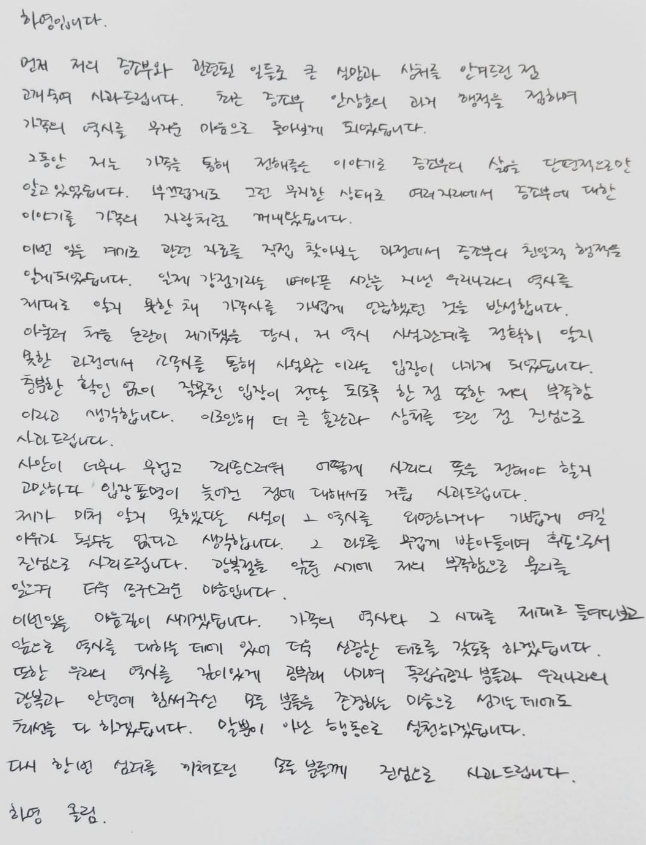 하영입니다.
먼저 저의 증조부와 관련된 일들로 큰 실망과 상처를 안겨드린 점
고개숙여 사과드립니다. 최근 증조부 안상호의 과거 행적을 접하며
가족의 역사를 무거운 마음으로 돌아보게 되었습니다.
그동안 저는 가족을 통해 전해들은 이야기로 증조부의 삶을 단편적으로만
알고 있었습니다. 부끄럽게도 그런 무지한 상태로 여러 자리에서 증조부에 대한
이야기를 가족의 자랑처럼 꺼내왔습니다.
이번 일을 계기로 관련 자료를 직접 찾아보는 과정에서 증조부의 친일적 행적을
알게되었습니다. 일제 강점기라는 뼈아픈 시간을 지나온 우리나라의 역사를
제대로 알지 못한 채 가족사를 가볍게 언급했던 것을 반성합니다.
아울러 처음 논란이 제기됐을 당시, 저 역시 사실관계를 정확히 알지
못한 과정에서 소속사를 통해 사실무근이라는 입장이 나가게 되었습니다.
충분한 확인 없이 잘못된 입장이 전달 되도록 한 점 또한 저의 부족함
이라고 생각합니다. 이로인해 더 큰 혼란과 상처를 드린 점 진심으로
사과드립니다.
사안이 너무나 무겁고 죄송스러워 어떻게 사죄의 뜻을 전해야 할지
고민하다 입장표명이 늦어진 점에 대해서도 거듭 사과드립니다.
제가 미처 알지 못했다는 사실이 그 역사를 외면하거나 가볍게 여길
이유가 될수는 없다고 생각합니다. 그 과오를 무겁게 받아들이며 후손으로서
진심으로 사죄드립니다. 광복절을 앞둔 시기에 저의 부족함으로 물의를
일으켜 더욱 송구스러운 마음입니다.
이번일을 마음깊이 새기겠습니다. 가족의 역사와 그 시대를 제대로 들여다보고
앞으로 역사를 대하는 데에 있어 더욱 신중한 태도를 갖도록 하겠습니다.
또한 우리의 역사를 깊이있게 공부해 나가며 독립유공자 분들과 우리나라의
광복과 안녕에 힘써주신 모든 분들을 존경하는 마음으로 섬기는 데에도
최선을 다 하겠습니다. 말뿐이 아닌 행동으로 실천하겠습니다.
다시 한번 심려를 끼쳐드린 모든 분들께 진심으로 사과드립니다.
하영 올림.